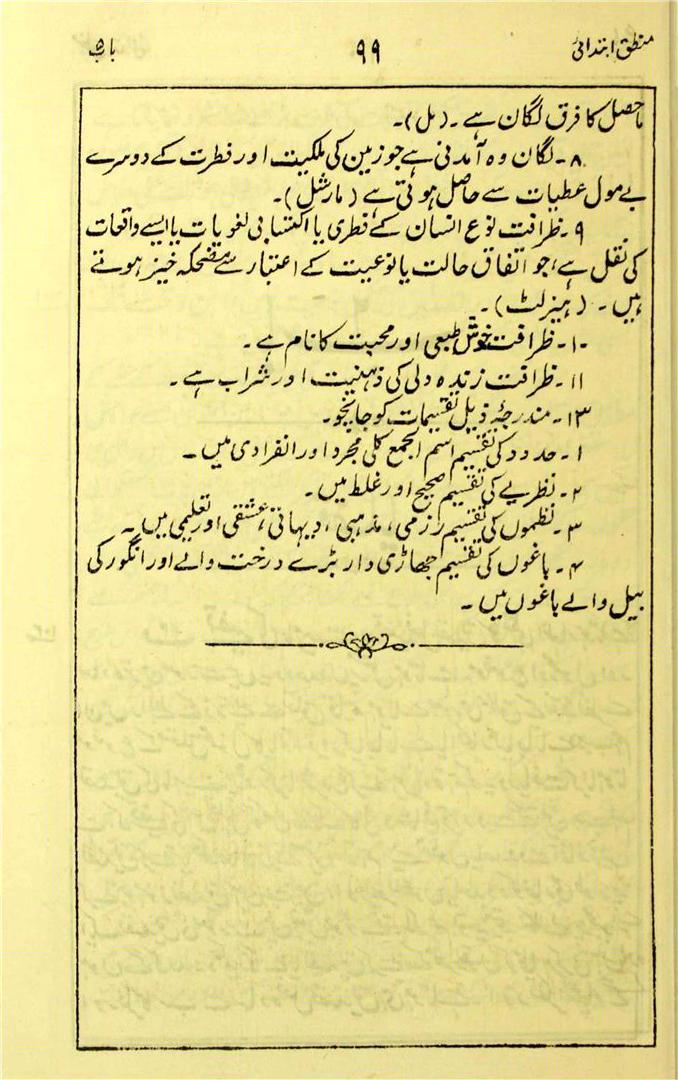 منطق ابتدائی ۹۹ باب۵
ماحصل کا فرق لگان ہے۔ (مل)۔
۸۔ لگان وہ آمدنی ہے جو زمین کی ملکیت اور فطرت کے دوسرے
بے مول عطیات سے حاصل ہوتی ہے (مارشل)۔
۹۔ ظرافت نوع انسان کے فطری یا اکتسابی لغویات یا ایسے واقعات
کی نقل ہے، جو اتفاق حالت یا نوعیت کے اعتبار سے مضحکہ خیز ہوتے
ہیں۔ (ہیزلٹ)۔
۱۰۔ ظرافت خوش طبعی اور محبت کا نام ہے۔
۱۱۔ ظرافت زندہ دلی کی ذہنیت اور شراب ہے۔
۱۳۔ مندرجۂ ذیل تقسیمات کو جانچو۔
۱۔ حدود کی تقسیم اسم الجمع کلی مجرد اور انفرادی میں۔
۲۔ نظریے کی تقسیم صحیح اور غلط میں۔
۳۔ نظموں کی تقسیم رزمی، مذہبی، دیہاتی، عشقی اور تعلیمی میں۔
۴۔ باغوں کی تقسیم جھاڑی دار بڑے درخت والے اور انگور کی
بیل والے باغوں میں۔